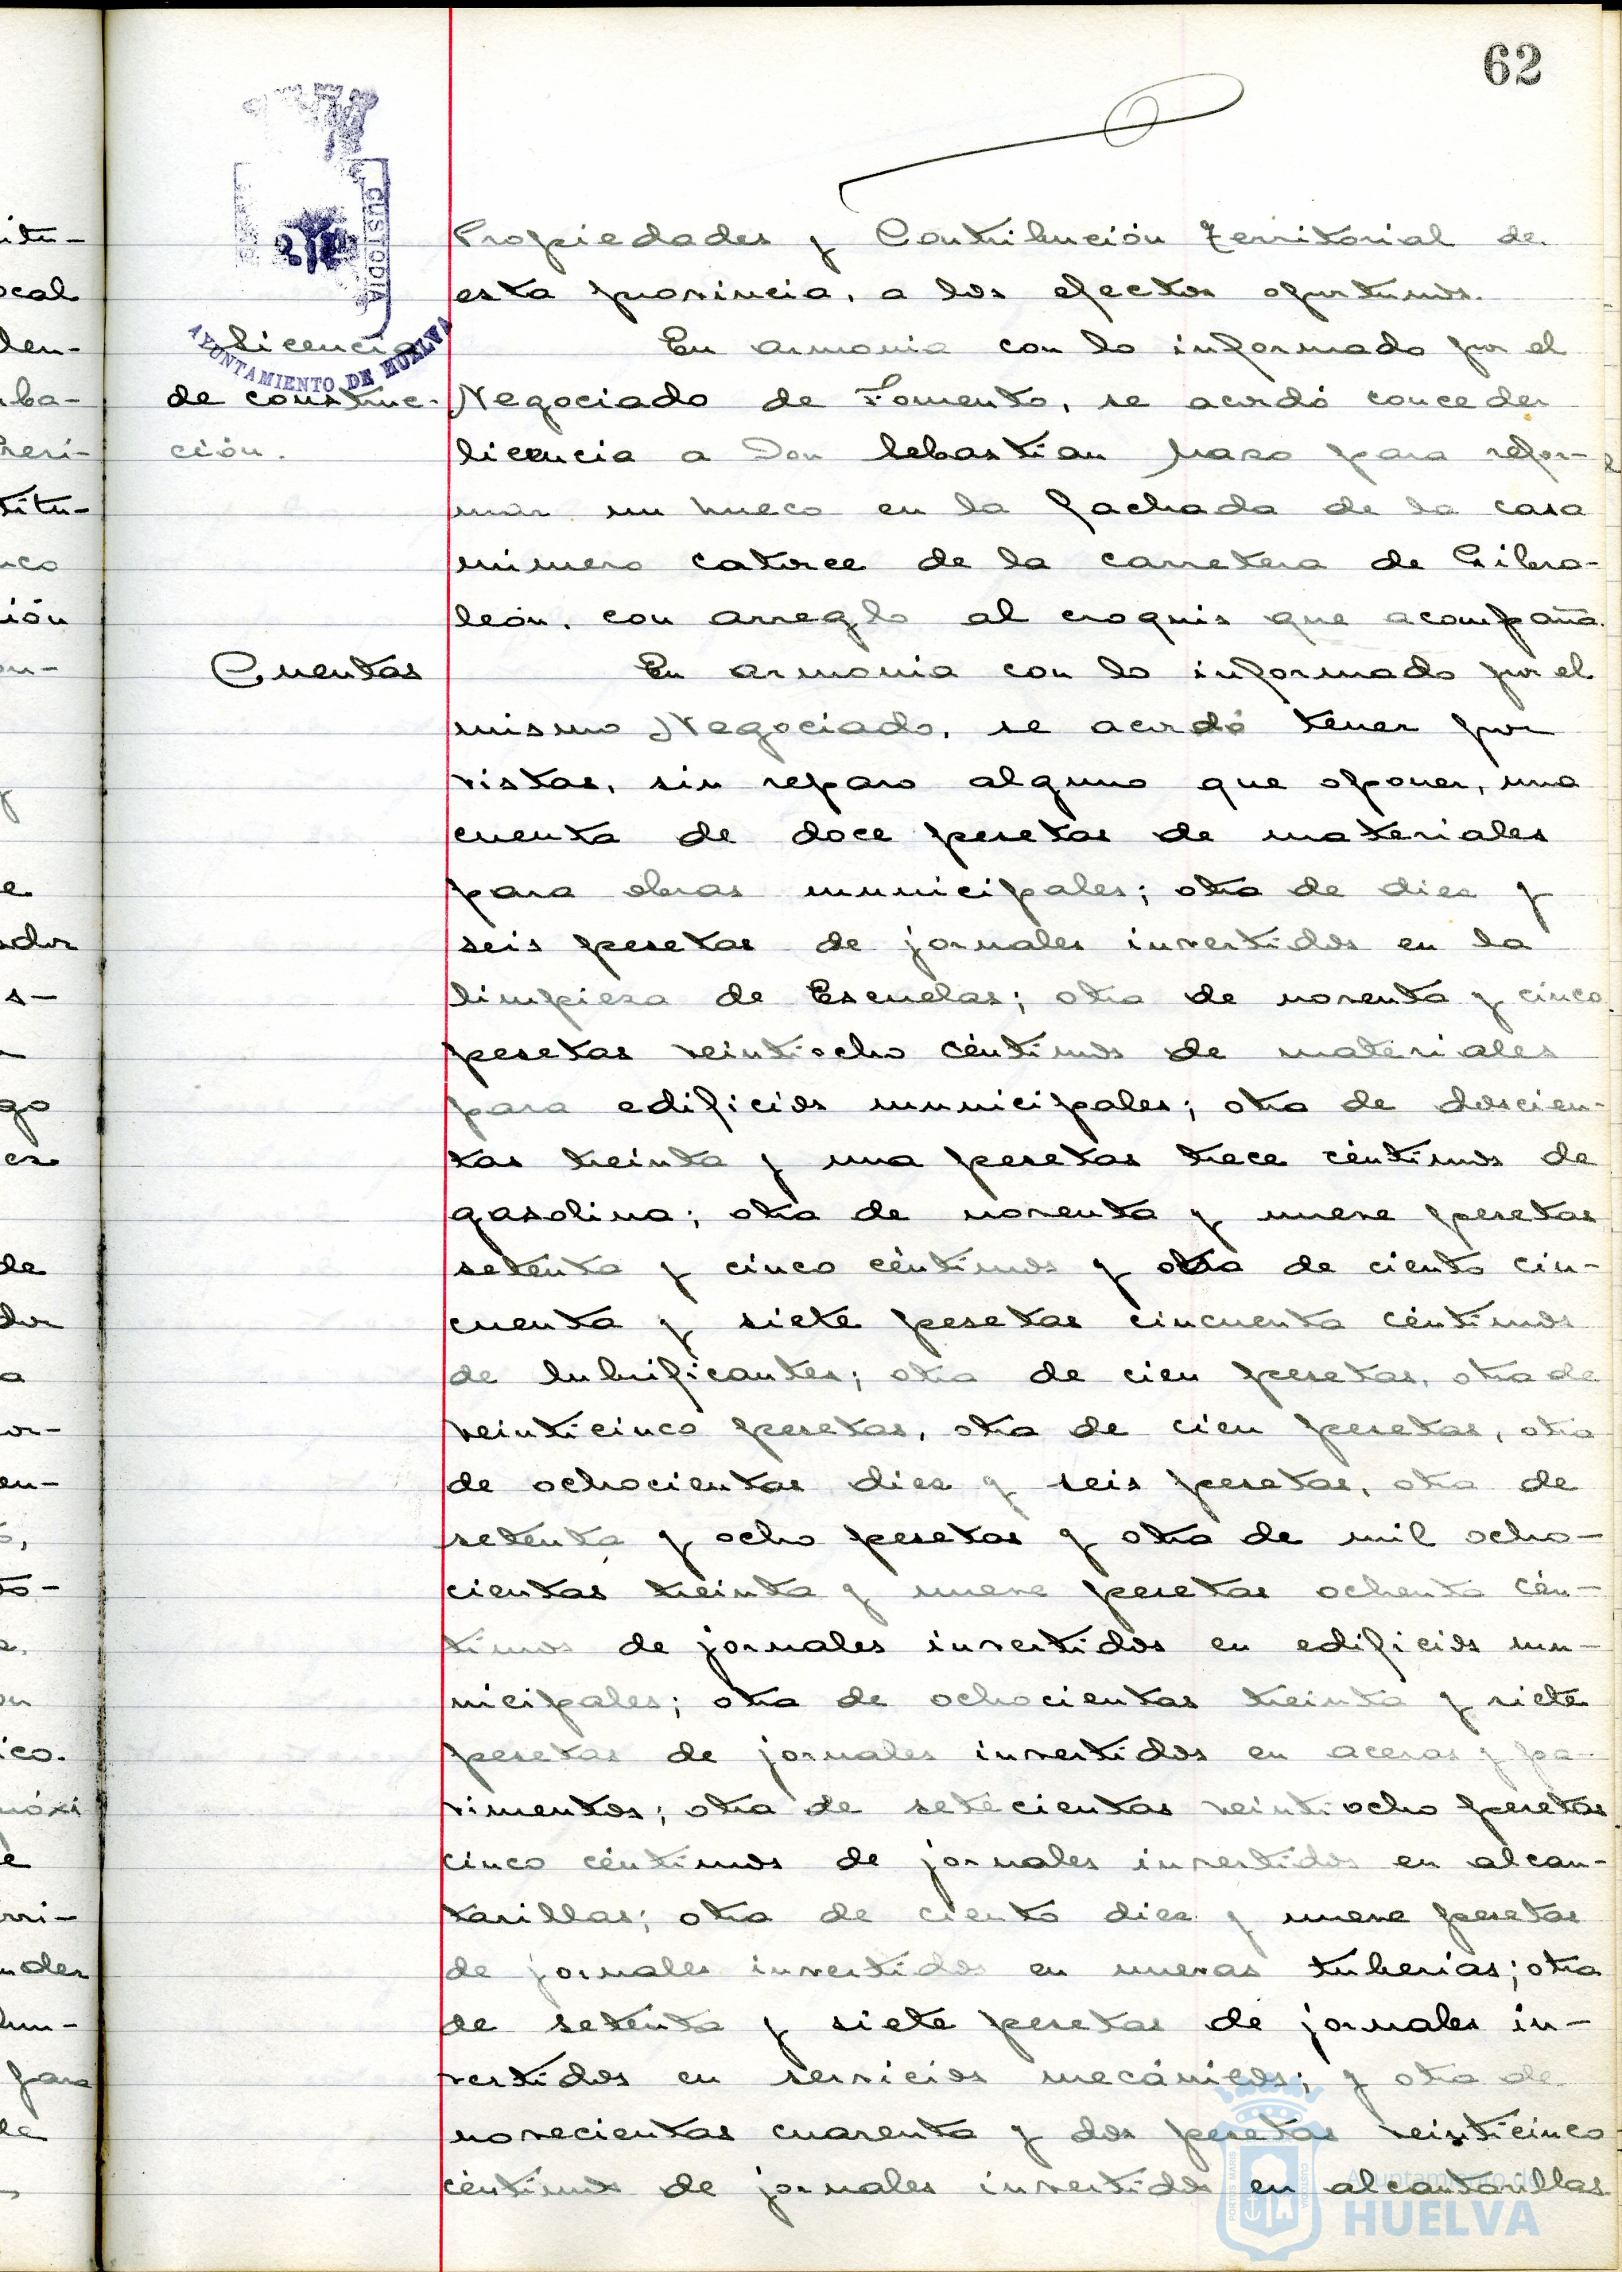 62
Propiedades y Contribución Territorial de
esta provincia, a los efectos oportunos.
Licencia
de construc-
ción.
En armonia con lo informado por el
Negociado de Fomento, se acordó conceder
licencia a Don Sebastian para refor-
mar un hueco en la fachada de la casa
número catorce de la carretera de Gibra-
león, con arreglo al croquis que acompaña.
Cuentas
En armonia con lo informado por el
mismo Negociado, se acordó tener por
vistas, sin reparo alguno que oponer, una
cuenta de doce pesetas de materiales
para obras municipales; otra de diez y
seis pesetas de jornales invertidos en la
limpieza de Escuelas; otra de noventa y cinco
pesetas veintiocho céntimos de materiales
para edificios municipales; otra de doscien-
tas treinta y una pesetas trece céntimos de
gasolina; otra de noventa y nueve pesetas
setenta y cinco céntimos y otra de ciento cin-
cuenta y siete pesetas cincuenta céntimos
de lubrificantes; otra de cien pesetas, otra de
veinticinco pesetas, otra de cien pesetas, otra
de ochocientas diez y seis pesetas, otra de
setenta y ocho pesetas y otra de mil ocho-
cientas treinta y nueve pesetas ochenta cén-
timos de jornales invertidos en edificios mu-
nicipales; otra de ochocientas treinta y siete
pesetas de jornales invertidos en aceras y pa-
vimentos; otra de setecientas veintiocho pesetas
cinco céntimos de jornales invertidos en alcan-
tarillas; otra de ciento diez y nueve pesetas
de jornales invertidos en nuevas tuberias; otra
de setenta y siete pesetas de jornales in-
vertidos en servicios mecánicos; y otra de
novecientas cuarenta y dos pesetas veinticinco
céntimos de jornales invertidos en alcantarillas
CUSTODIA
AYUNTAMIENTO DE HUELVA
Ayuntamiento de
HUELVA